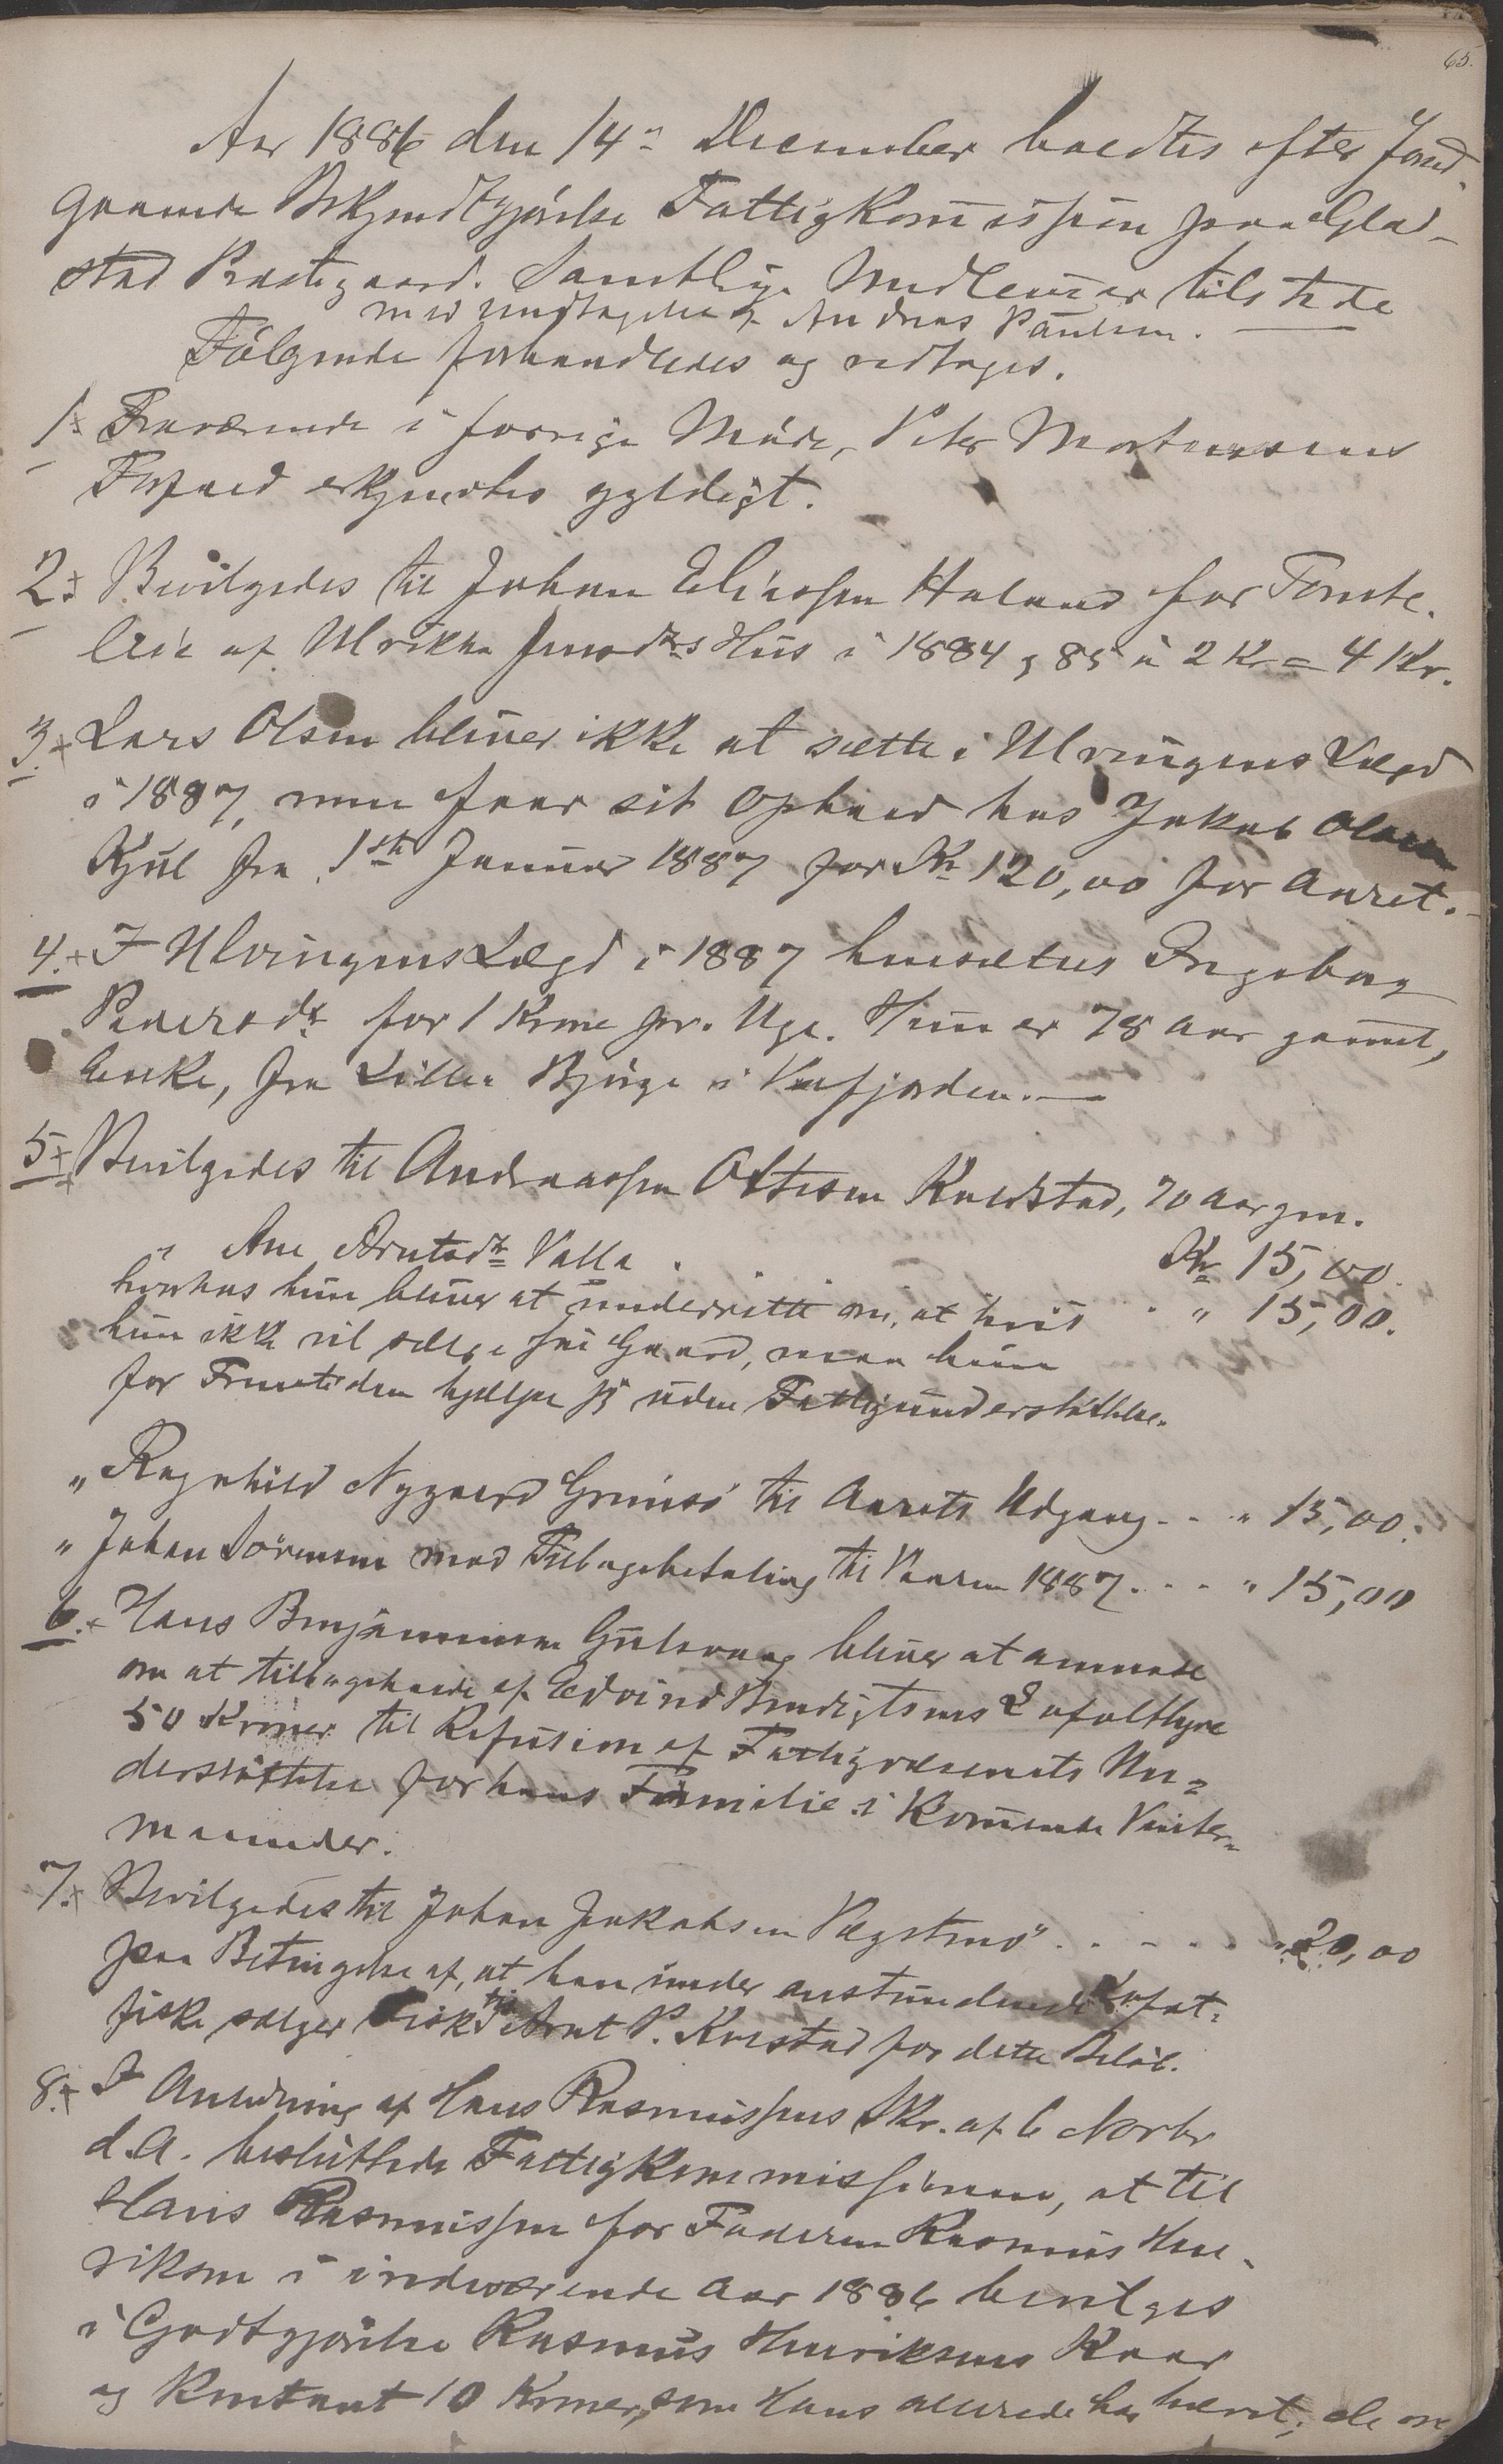 65.
Aar 1886 den 14de December holdtes efter forud-
gaaende Bekjendtgjørelse Fattigkommission paa Glad-
stad Præstegaard. Samtlige Medlemmer tilstede
med undtagelse af Andreas Paulsen.
Følgende forhandledes og vedtoges.
1. Fraværende i forrige Møde, Peter Mortensens
Forfald erkjendtes gyldigt.
2. Bevilgedes til Johan Eliassen Haland for Tomte-
leie af Ulrikke Jensdtrs Hus i 1884 og 85 à 2 Kr = 4 Kr.
3. Lars Olsen bliver ikke at sætte i Ulvingens Lægd
i 1887, men faar sit Ophold hos Jakob Olsen
Kjul fra 1ste Januar 1887 for Kr 120,00 for Aaret.
4. I Ulvingens Lægd i 1887 hensættes Ingeborg
Pedersdtr for 1 Krone pr. Uge. Hun er 78 Aar gammel,
Enke, fra Lille Bjørge i Vefsfjorden.
5. Bevilgedes til Andreassen Ottesen Kvelstad, 70 Aar gm.
Kr 15,00.
" Ane Arntsdtr Valla . . . . " 15,00.
hvorhos hun bliver at underrette om, at hvis
hun ikke vil sælge sin Gaard, maa hun
for Fremtiden hjælpe sig uden Fattigunderstøttelse.
" Ragnhild Nygaard Grimsø til Aarets Udgang . . " 15,00.
" Johan Sørensen mod Tilbagebetaling til Vaaren 1887 . . . " 15,00
6. Hans Benjaminsen Gulsvaag bliver at anmode
om at tilbageholde af Edvind Bendigtsens Lofothyre
50 Kroner til Refusion af Fattigvæsenets Un-
derstøttelse for hans Familie i kommende Vinter-
maaneder.
7. Bevilgedes til Johan Jakobsen Vægstenø . . . . . " 20,00
paa Betingelse af, at han under anstundende Lofot-
fiske sælger Fisk til Arnt P. Kvestad for dette Beløb.
8. I Anledning af Hans Rasmussens Skr. af 6 Novbr
d.A. besluttede Fattigkommissionen, at til
Hans Rasmussen for Faderen Rasmus Hen-
riksen i indeværende Aar 1886 bevilges
i Godtgjørelse Rasmus Henriksens Kaar
og Kontant 10 Kroner, som Hans allerede har hævet; de om